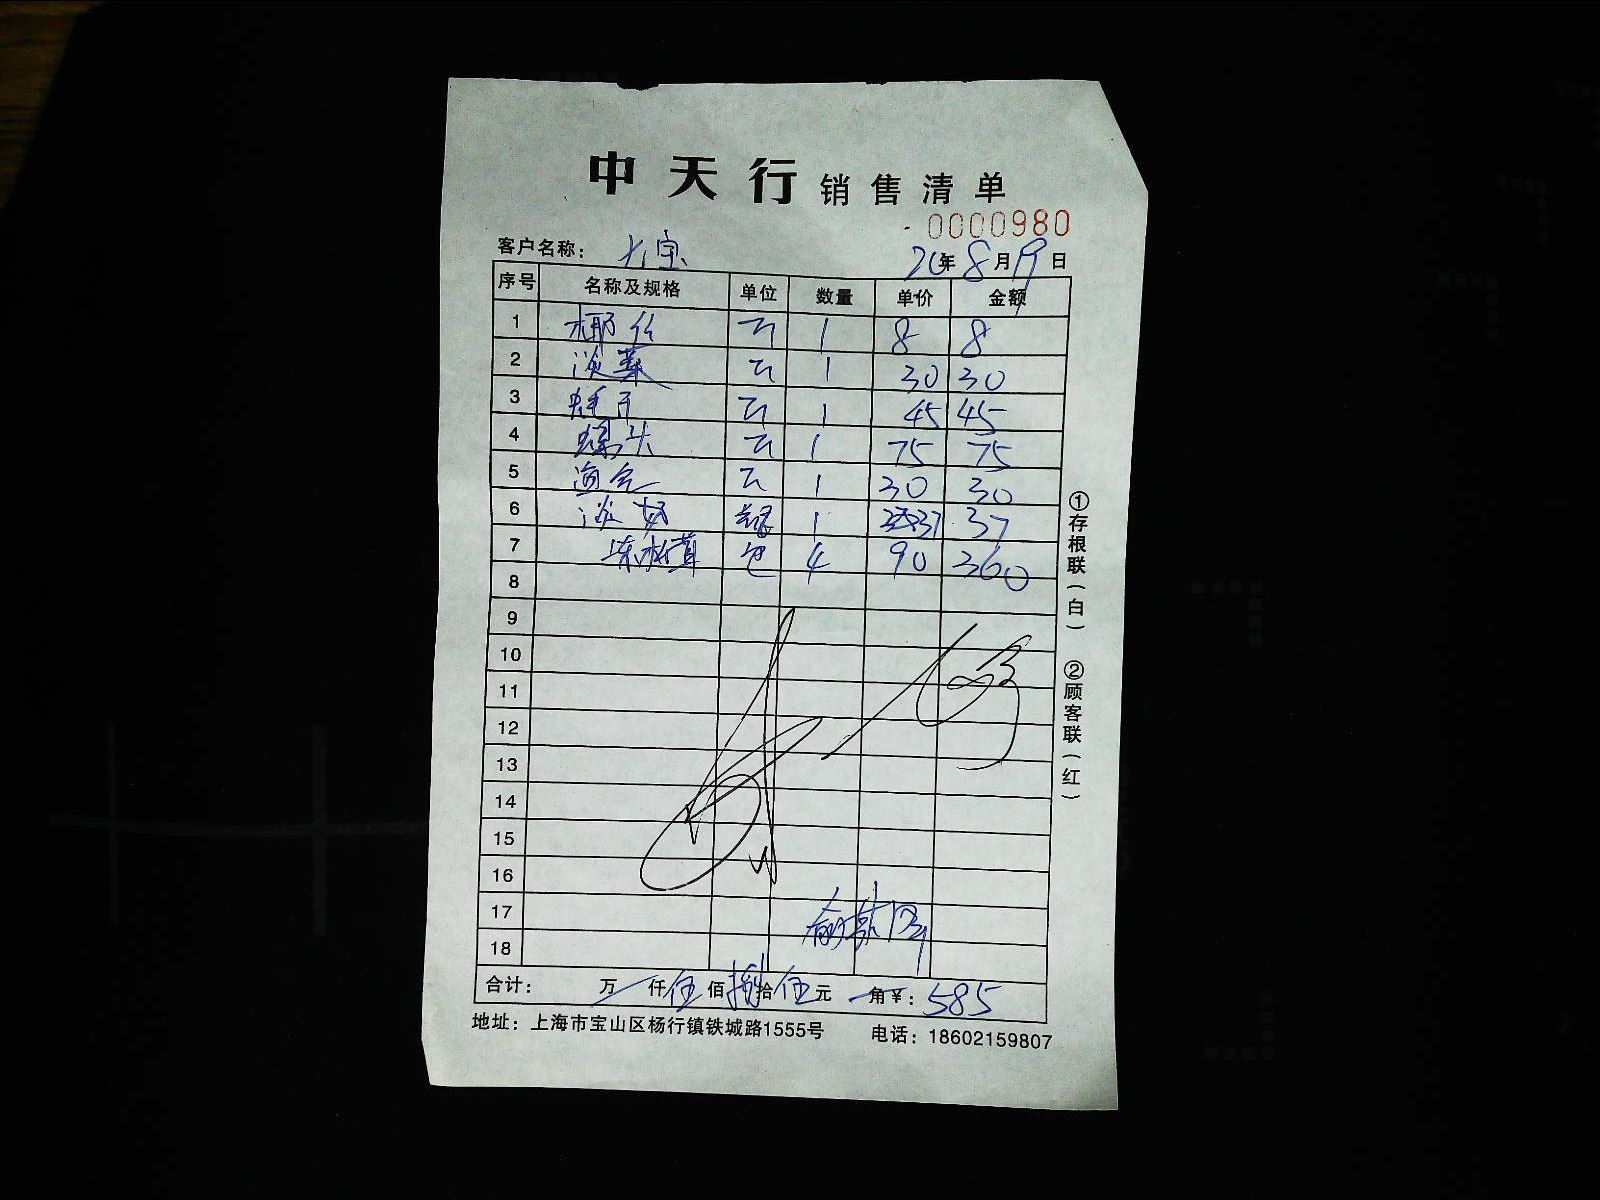 中天行 销售清单
0000980
客户名称： 七宝 20年 8月 19日
序号 名称及规格 单位 数量 单价 金额
1 椰丝 斤 1 8 8
2 淡菜 斤 1 30 30
3 蛏干 斤 1 45 45
4 螺头 斤 1 75 75
5 斤 1 30 30
6 淡奶 1 37 37
7 冻松茸 包 4 90 360
8
9
10
11
12
13
14
15
16
17
18
合计： 万 仟 伍 佰 捌 拾 伍 元 角 ¥：585
地址：上海市宝山区杨行镇铁城路1555号 电话：18602159807
①存根联（白） ②顾客联（红）